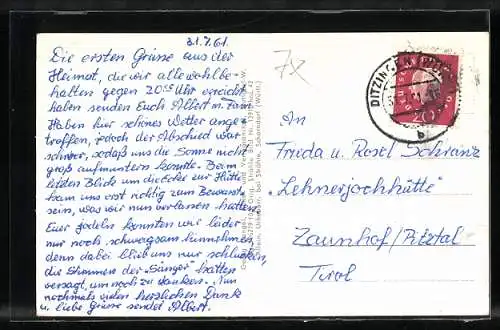 31.7.61
Die ersten Grüsse aus der
Heimat, die wir alle wohlbe-
halten gegen 20 Uhr erreicht
haben senden Euch Albert m. Fam.
Haben hier schönes Wetter ange-
troffen, jedoch der Abschied war
schwer, sodaß uns die Sonne nicht
groß aufmuntern konnte. Beim
letzten Blick um die Ecke zur Hütte
kam uns erst richtig zum Bewusst-
sein, was wir nun verlassen hatten.
Euer jodeln konnten wir leider
nur noch schweigsam hinnehmen,
denn dabei blieb uns nur schlucken,
die Stimmen der "Sänger" hatten
versagt, um noch zu danken. Nun
nochmals vielen herzlichen Dank
u. liebe Grüsse sendet Albert.
7x
DITZINGEN
b
20
An
Frieda u. Rosel Schranz
"Lehnerjochhütte"
Zaunhof / Pitztal
Tirol